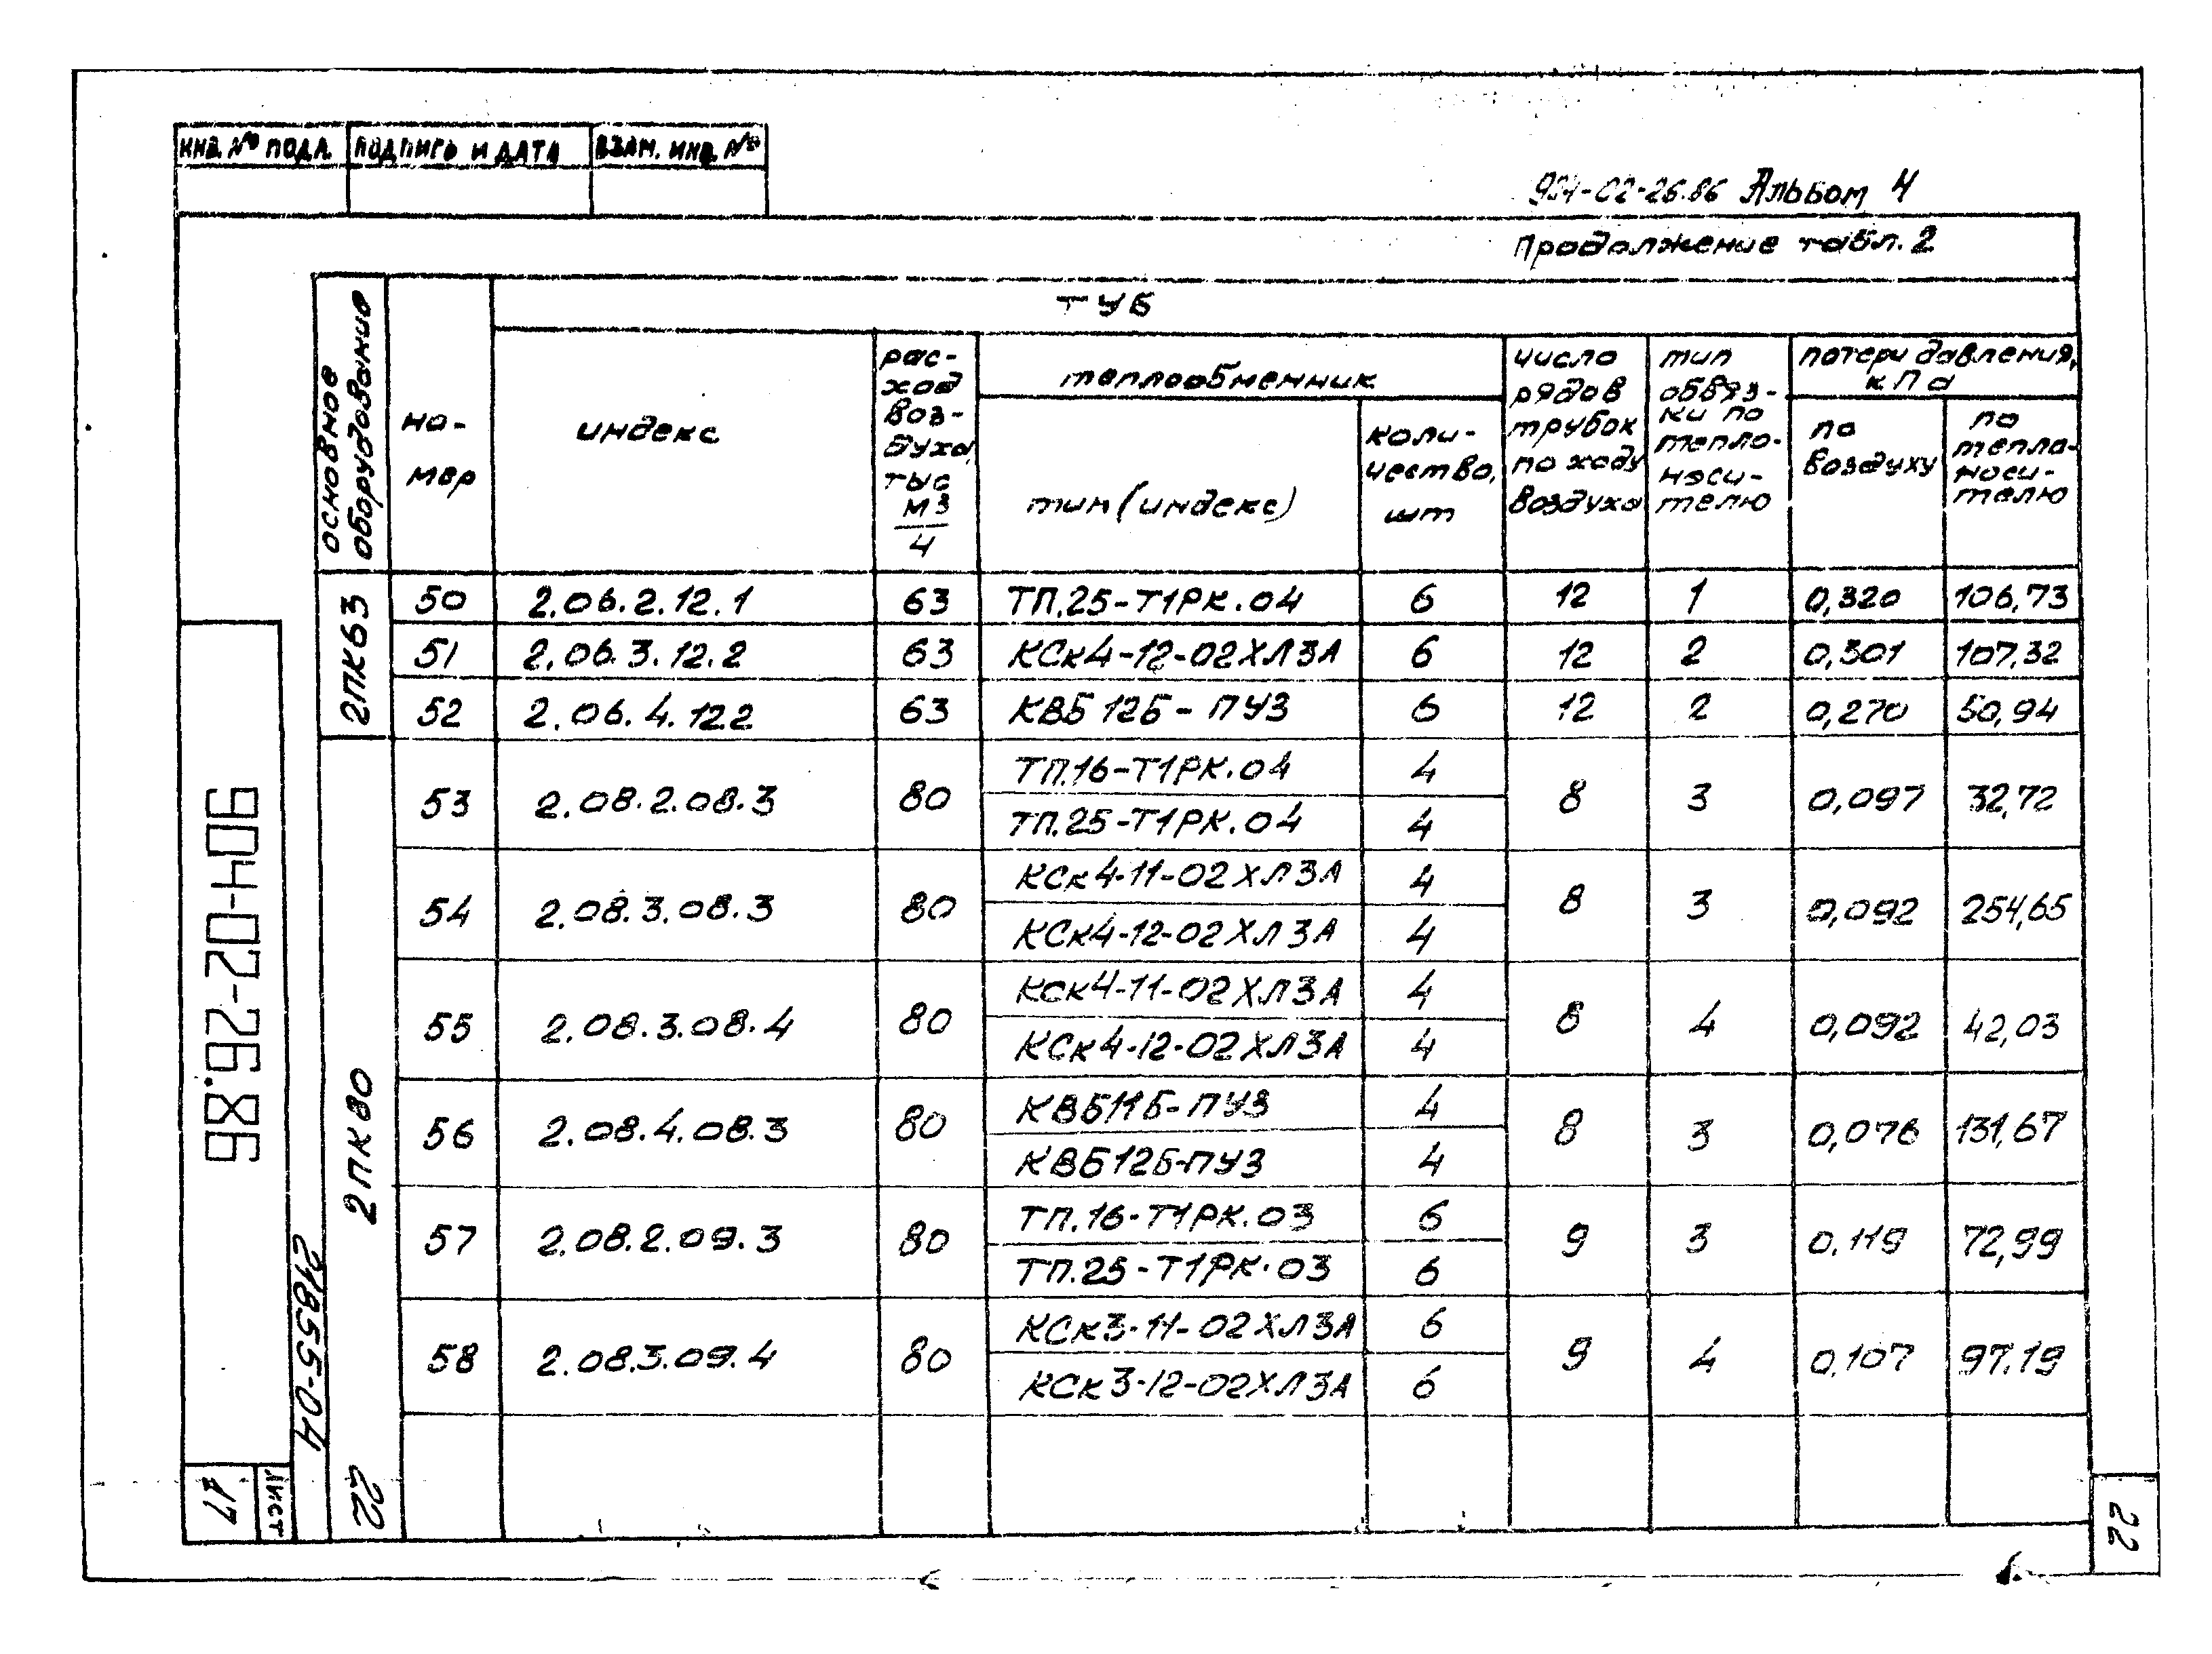 инв. № подл. подпись и дата взам. инв. №
904-02-26.86 Альбом 4
Продолжение табл. 2
основное оборудование
но-
мер
ТУБ
индекс
рас-
ход
воз-
духа,
тыс
м3
ч
теплообменник
тип (индекс)
коли-
чество,
шт
число
рядов
трубок
по ходу
воздуха
тип
обвяз-
ки по
тепло-
носи-
телю
потери давления,
кПа
по
воздуху
по
тепло-
носи-
телю
2ПК63
50 2.06.2.12.1 63 ТП.25-Т1РК.04 6 12 1 0,320 106,73
51 2.06.3.12.2 63 КСк4-12-02ХЛ3А 6 12 2 0,301 107,32
52 2.06.4.12.2 63 КВБ12Б-ПУ3 6 12 2 0,270 50,94
2ПК80
53 2.08.2.08.3 80 ТП.16-Т1РК.04 4 8 3 0,097 32,72
ТП.25-Т1РК.04 4
54 2.08.3.08.3 80 КСк4-11-02ХЛ3А 4 8 3 0,092 254,65
КСк4-12-02ХЛ3А 4
55 2.08.3.08.4 80 КСк4-11-02ХЛ3А 4 8 4 0,092 42,03
КСк4-12-02ХЛ3А 4
56 2.08.4.08.3 80 КВБ11Б-ПУ3 4 8 3 0,076 131,67
КВБ12Б-ПУ3 4
57 2.08.2.09.3 80 ТП.16-Т1РК.03 6 9 3 0,119 72,99
ТП.25-Т1РК.03 6
58 2.08.3.09.4 80 КСк3-11-02ХЛ3А 6 9 4 0,107 97,19
КСк3-12-02ХЛ3А 6
904-02-26.86
21855-04
22
Лист
17
22